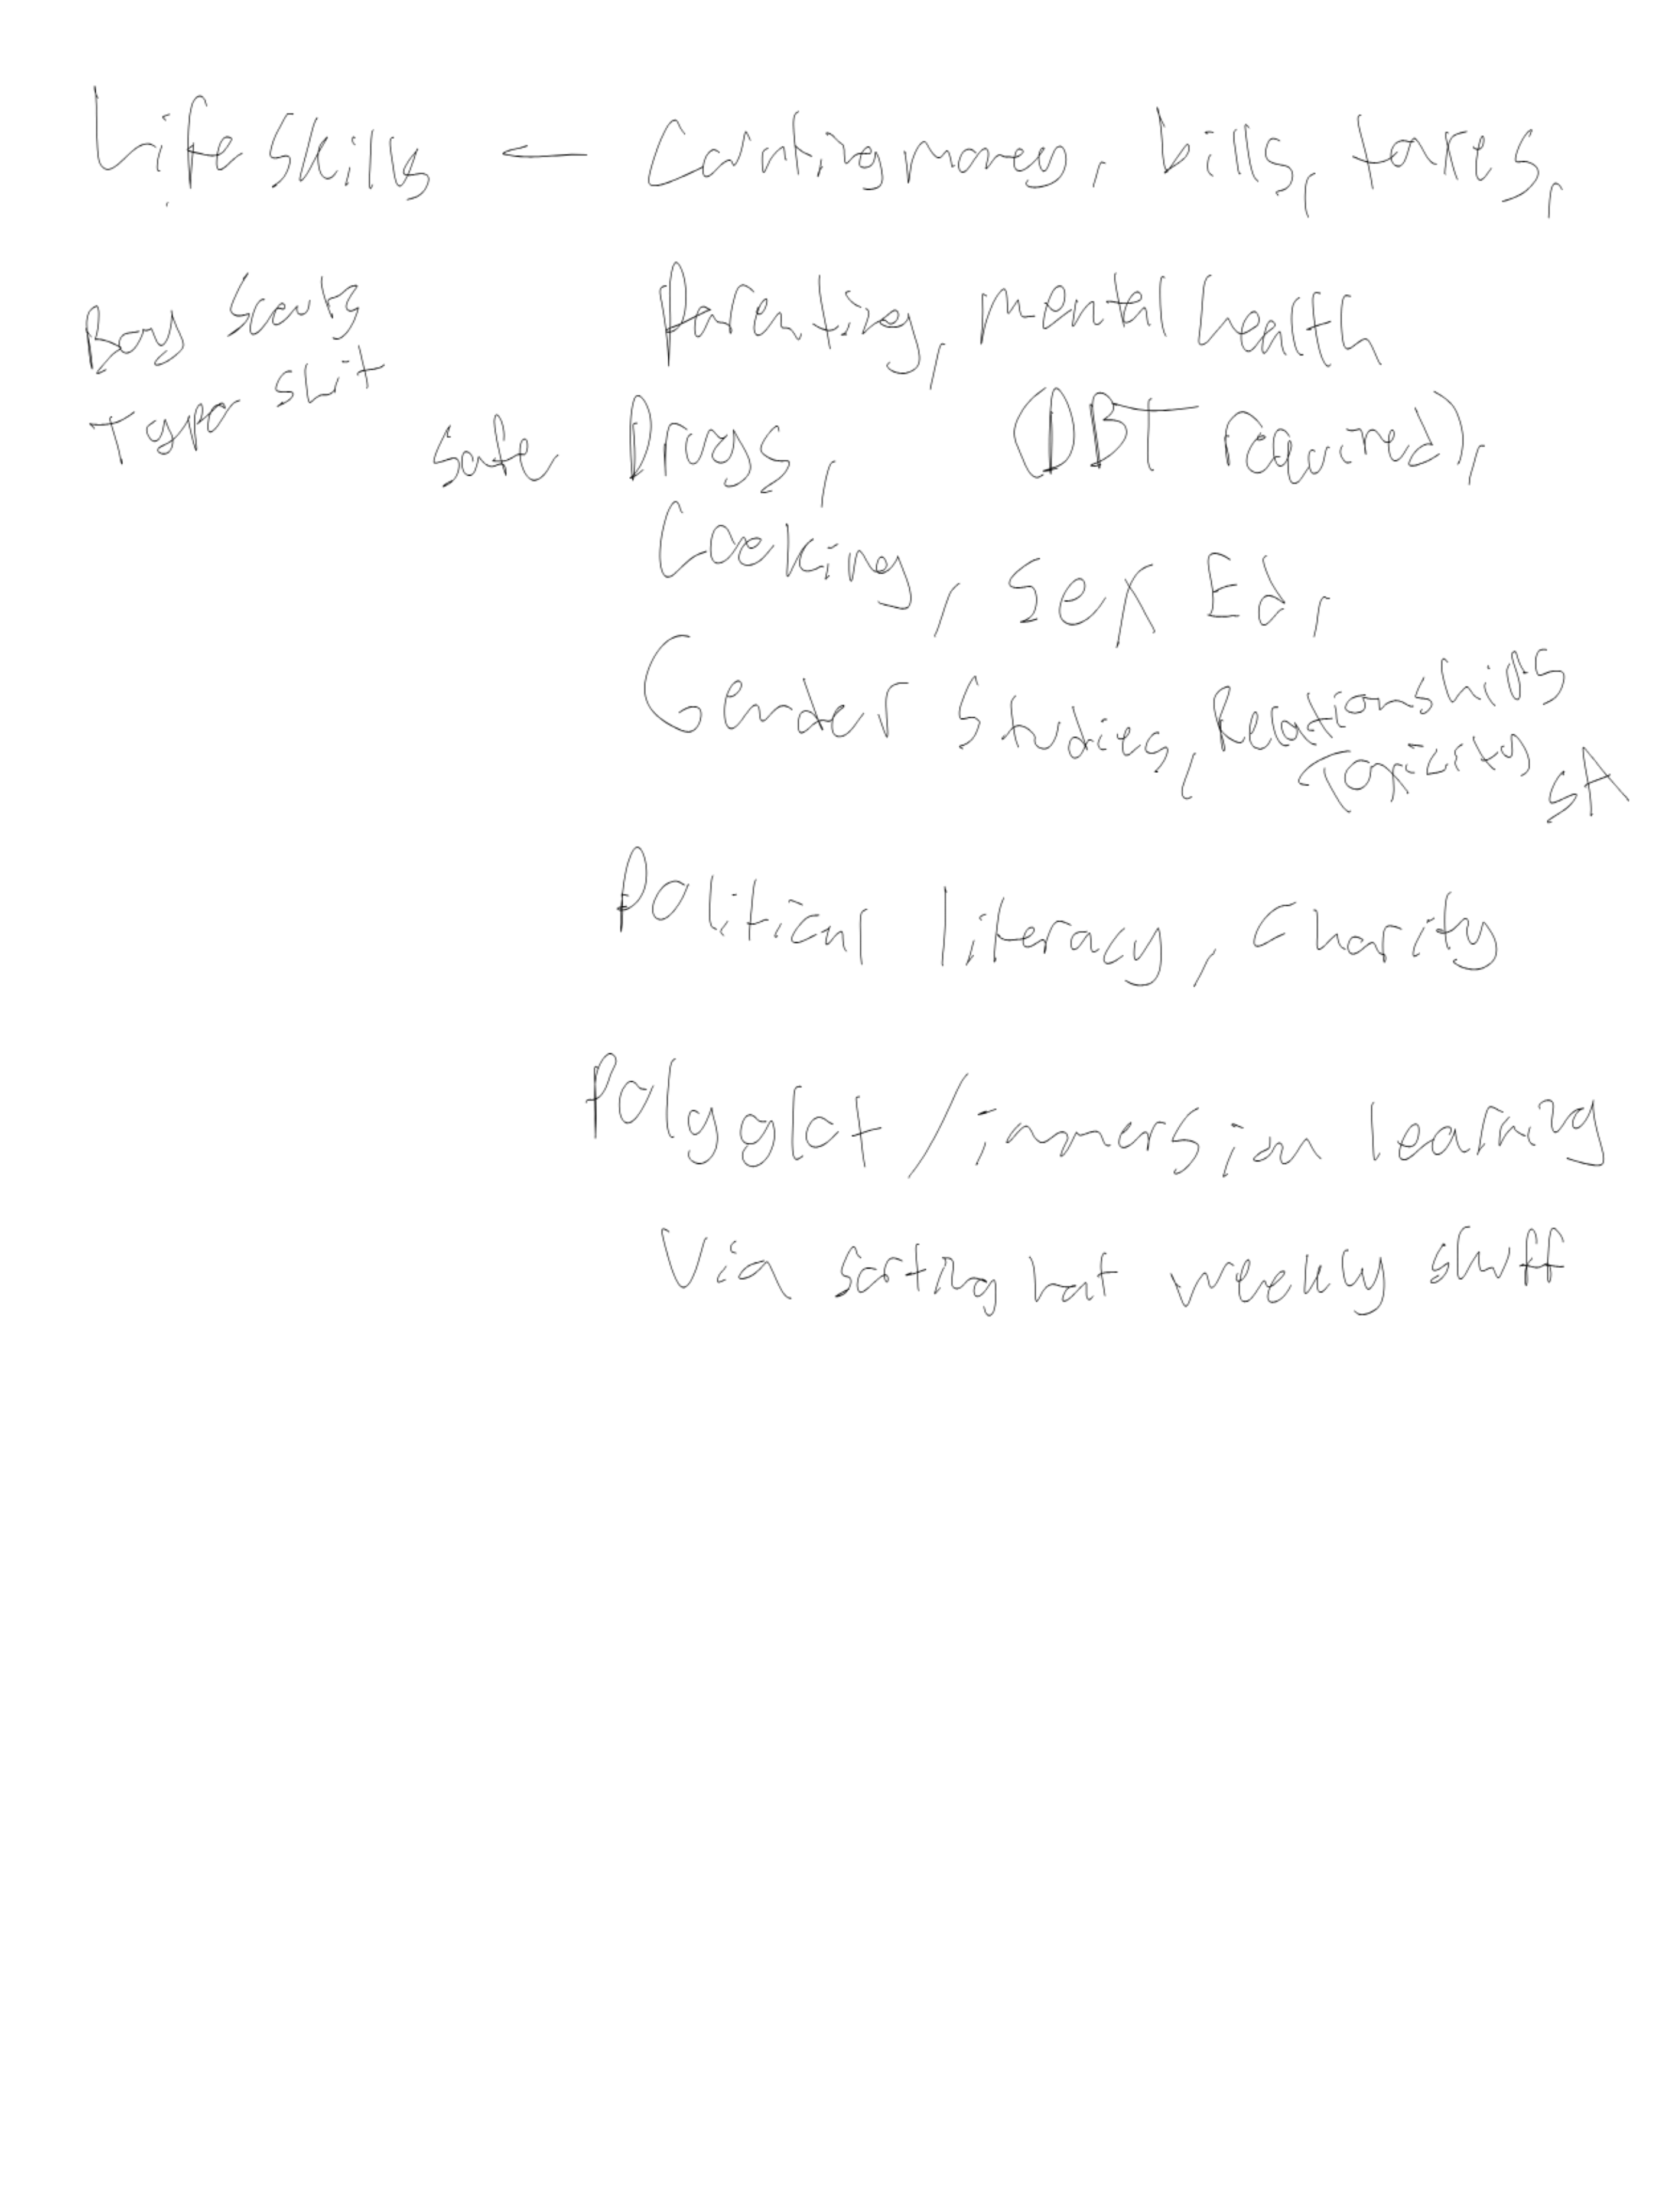 Life Skills — Counting money, bills, taxes,
Boy Scouts
Type shit
Parenting, mental health
safe Drugs, (DBT required),
Cooking, Sex Ed,
Gender Studies, Relationships
Toxicity SA
Political literacy, Charity
Polyglot / immersion learning
Via sorting hat weekly stuff